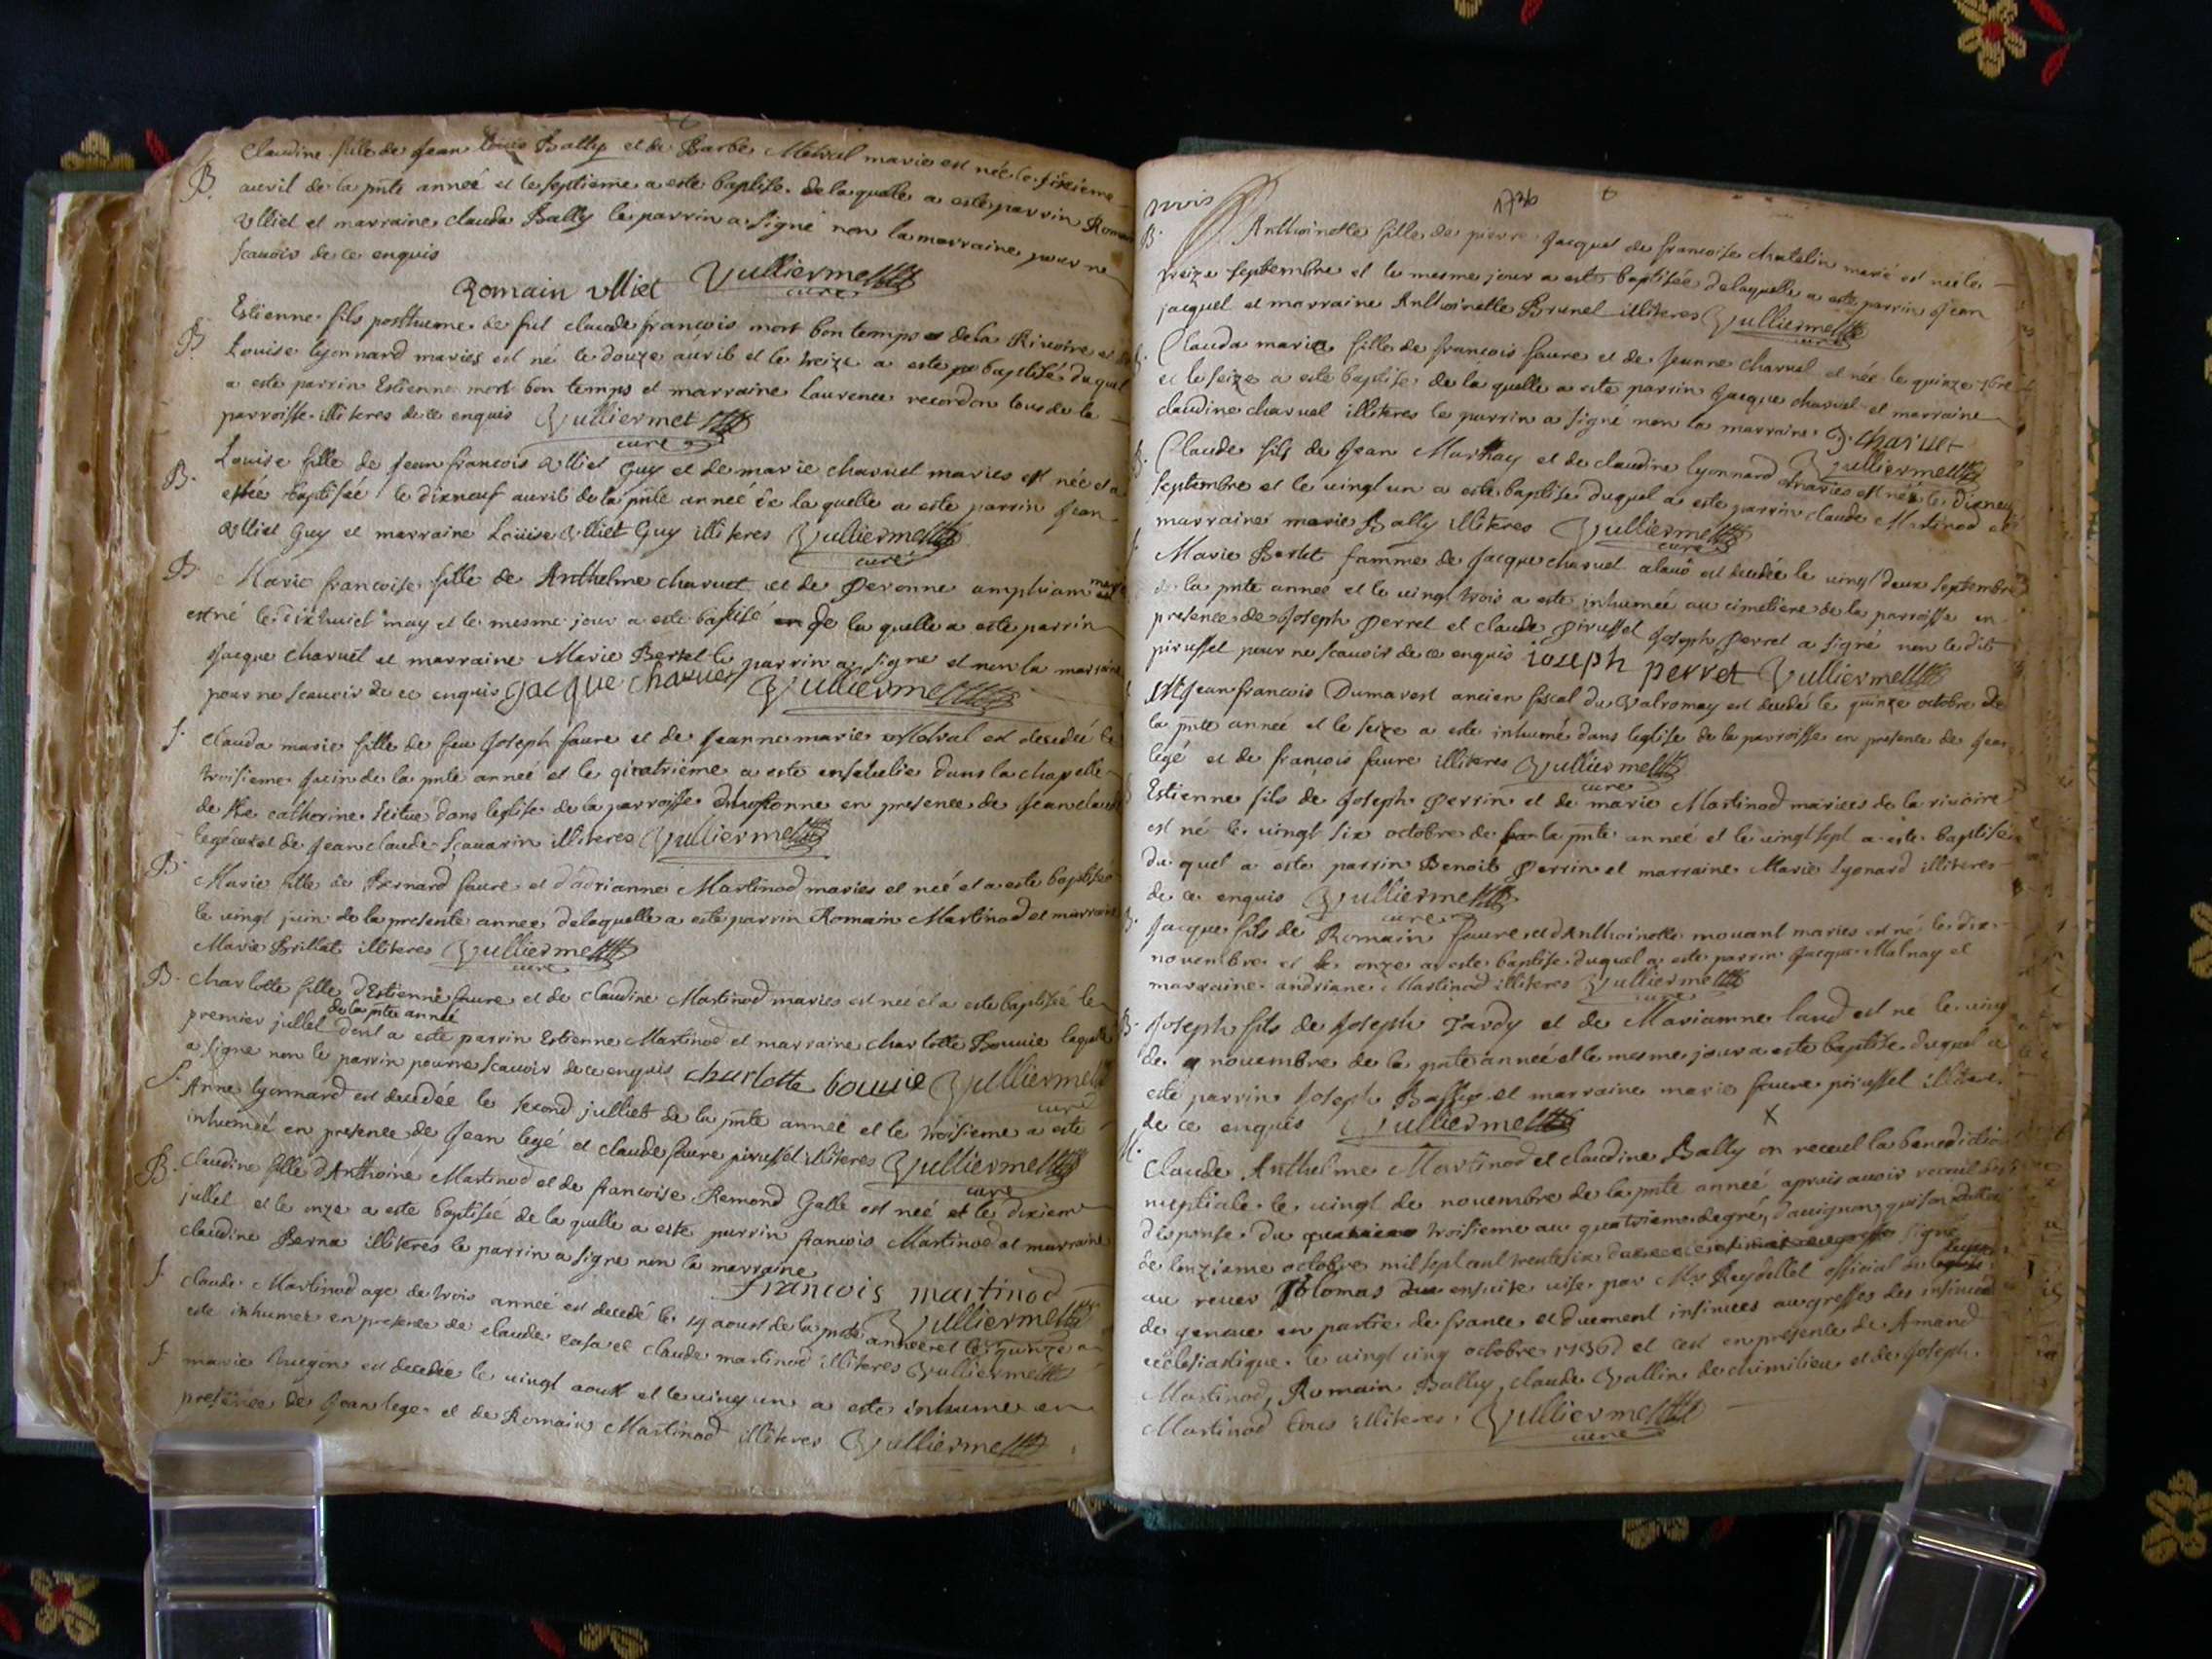 B. Claudine fille de Jean louis Bally et de Barbe Metral maries est née le sixieme
auril de la pnte anneé et le septieme a este baptise de laquelle a este parrin Romain
Vlliet et marraine clauda Bally le parrin a signé non la marraine pour ne
scauoir de ce enquis
Romain vlliet Vulliermet
cure
B. Estienne fils posthume de feu claude francois mort bon temps de la Riuoire et de
Louise lyonnard maries est né le douze auril et le treize a este baptisé duquel
a este parrin Estienne mort bon temps et marraine Laurence recordon tous de la
parroisse illiteres de ce enquis Vulliermet
cure
B. Louise fille de Jean francois Vlliet Guy et de marie charuet maries est neé et a
estée baptiseé le dixneuf auril de la pnte anneé de la quelle a este parrin Jean
Vlliet Guy et marraine Loüise Vlliet Guy illiteres Vulliermet
curé
B. Marie francoise fille de Anthelme charuet et de Peronne amphian maries
est né le dixhuict may et le mesme jour a este baptisé de la quelle a este parrin
Jacque charuet et marraine Marie Bertet le parrin a signe et non la marraine
pour ne scauoir de ce enquis Jacque charuet Vulliermet
S. clauda marie fille de feu Joseph faure et de Jeanne marie Metral est decedeé le
troisieme Juin de la pnte anneé et le quatrieme a este enseuelie dans la chapelle
de Ste catherine scitue dans leglise de la parroisse en presence de Jean claude
lege et de Jean claude Sauarin illiteres Vulliermet
B. Marie fille de Bernard faure et d'adrianne Martinod maries et neé et a este baptiseé
le vingt juin de la presente anneé de laquelle a este parrin Romain Martinod et marraine
Marie Brillat illiteres Vulliermet
cure
B. Charlotte fille d'Estienne faure et de claudine Martinod maries est neé et a este baptiseé le
de la pnte anneé
premier jullet dont a este parrin Estienne Martinod et marraine charlotte Bouuie laquelle
a signe non le parrin pour ne scauoir de ce enquis charlotte bouuie Vulliermet
cure
S. Anne lyonnard est decedée le second julliet de la pnte anneé et le troisieme a este
inhumeé en presence de Jean legé et claude faure pirussel illiteres Vulliermet
cure
B. claudine fille d'Anthoine Martinod et de francoise Remond Galle est neé et le dixieme
jullet et le onze a este baptiseé de la quelle a este parrin francois Martinod et marraine
claudine Berna illiteres le parrin a signe non la marraine
francois martinod
Vulliermet
S. claude Martinod age de trois anneé est decedé le 14 aoust de la pnte anneé et le quinze a
este inhumeé en presence de claude et claude martinod illiteres Vulliermet
S. marie hugon est decedée le vingt aoust et le vingt un a este inhume en
presence de Jean lege et de Romain Martinod illiteres Vulliermet
1736
B. Anthoinette fille de pierre Jacquet de francoise chatelin marié est neé le
treize septembre et le mesme jour a este baptisée de laquelle a este parrin Jean
jacquet et marraine Anthoinette Brunet illiteres Vulliermet
cure
Clauda marie fille de francois faure et de Jeanne charuet et neé le quinze 7bre
et le seize a este baptise de la quelle a este parrin Jacque charuet et marraine
claudine charuet illiteres le parrin a signé non la marraine J. charuet
Vulliermet
B. Claude fils de Jean Marthay et de claudine lyonnard maries est né le dixneuf
septembre et le vingt un a este baptise duquel a este parrin claude Martinod et
marraine marie Bally illiteres Vulliermet
cure
Marie Bertet famme de Jacque charuet est decedée le vingt deux septembre
de la pnte anneé et le vingt trois a este inhumeé au cimetiere de la parroisse en
presence de Joseph Perret et claude Pirussel Joseph Perret a signé non le dit
pirussel pour ne scauoir de ce enquis ioseph perret Vulliermet
Jean francois Dumarest ancien fiscal du Valromay est decedé le quinze octobre de
la pnte anneé et le seize a este inhumé dans leglise de la parroisse en presence de Jean
legé et de francois faure illiteres Vulliermet
cure
Estienne fils de Joseph Perrin et de marie Martinod mariers de la riuoire
est né le vingt six octobre de la pnte anneé et le vingt sept a este baptisé
du quel a este parrin Benoit Perrin et marraine Marie Lyonard illiteres
de ce enquis Vulliermet
cure
B. Jacque fils de Romain faure et d'Anthoinette mouant maries est né le dix
novembre et le onze a este baptise duquel a este parrin Jacque Malnay et
marraine andriane Martinod illiteres Vulliermet
cure
B. Joseph fils de Joseph Tardy et de Marianne laud est né le vingt
de novembre de la pnte anneé et le mesme jour a este baptise duquel a
este parrin Joseph Baffy et marraine marie fauere pirussel illitere
de ce enquis Vulliermet
M. Claude Anthelme Martinod et claudine Bally on receu la benediction
nuptiale le vingt de nouembre de la pnte anneé aprais auoir receuil
dispense du troisieme au quatrieme degré, d'auignon qui son datteé
de lonzieme octobre mil sept cent trente six signé
au reuer Tolomas ensuite vise par Mr Reydellet official du
de geneue en partie de france et duement insinuees au greffes des insinua
ecclesiastique le vingt cinq octobre 1736 et cest en presence de Amand
Martinod, Romain Bally, claude Vallin de chimilieu et de Joseph
Martinod tous illiteres. Vulliermet
cure